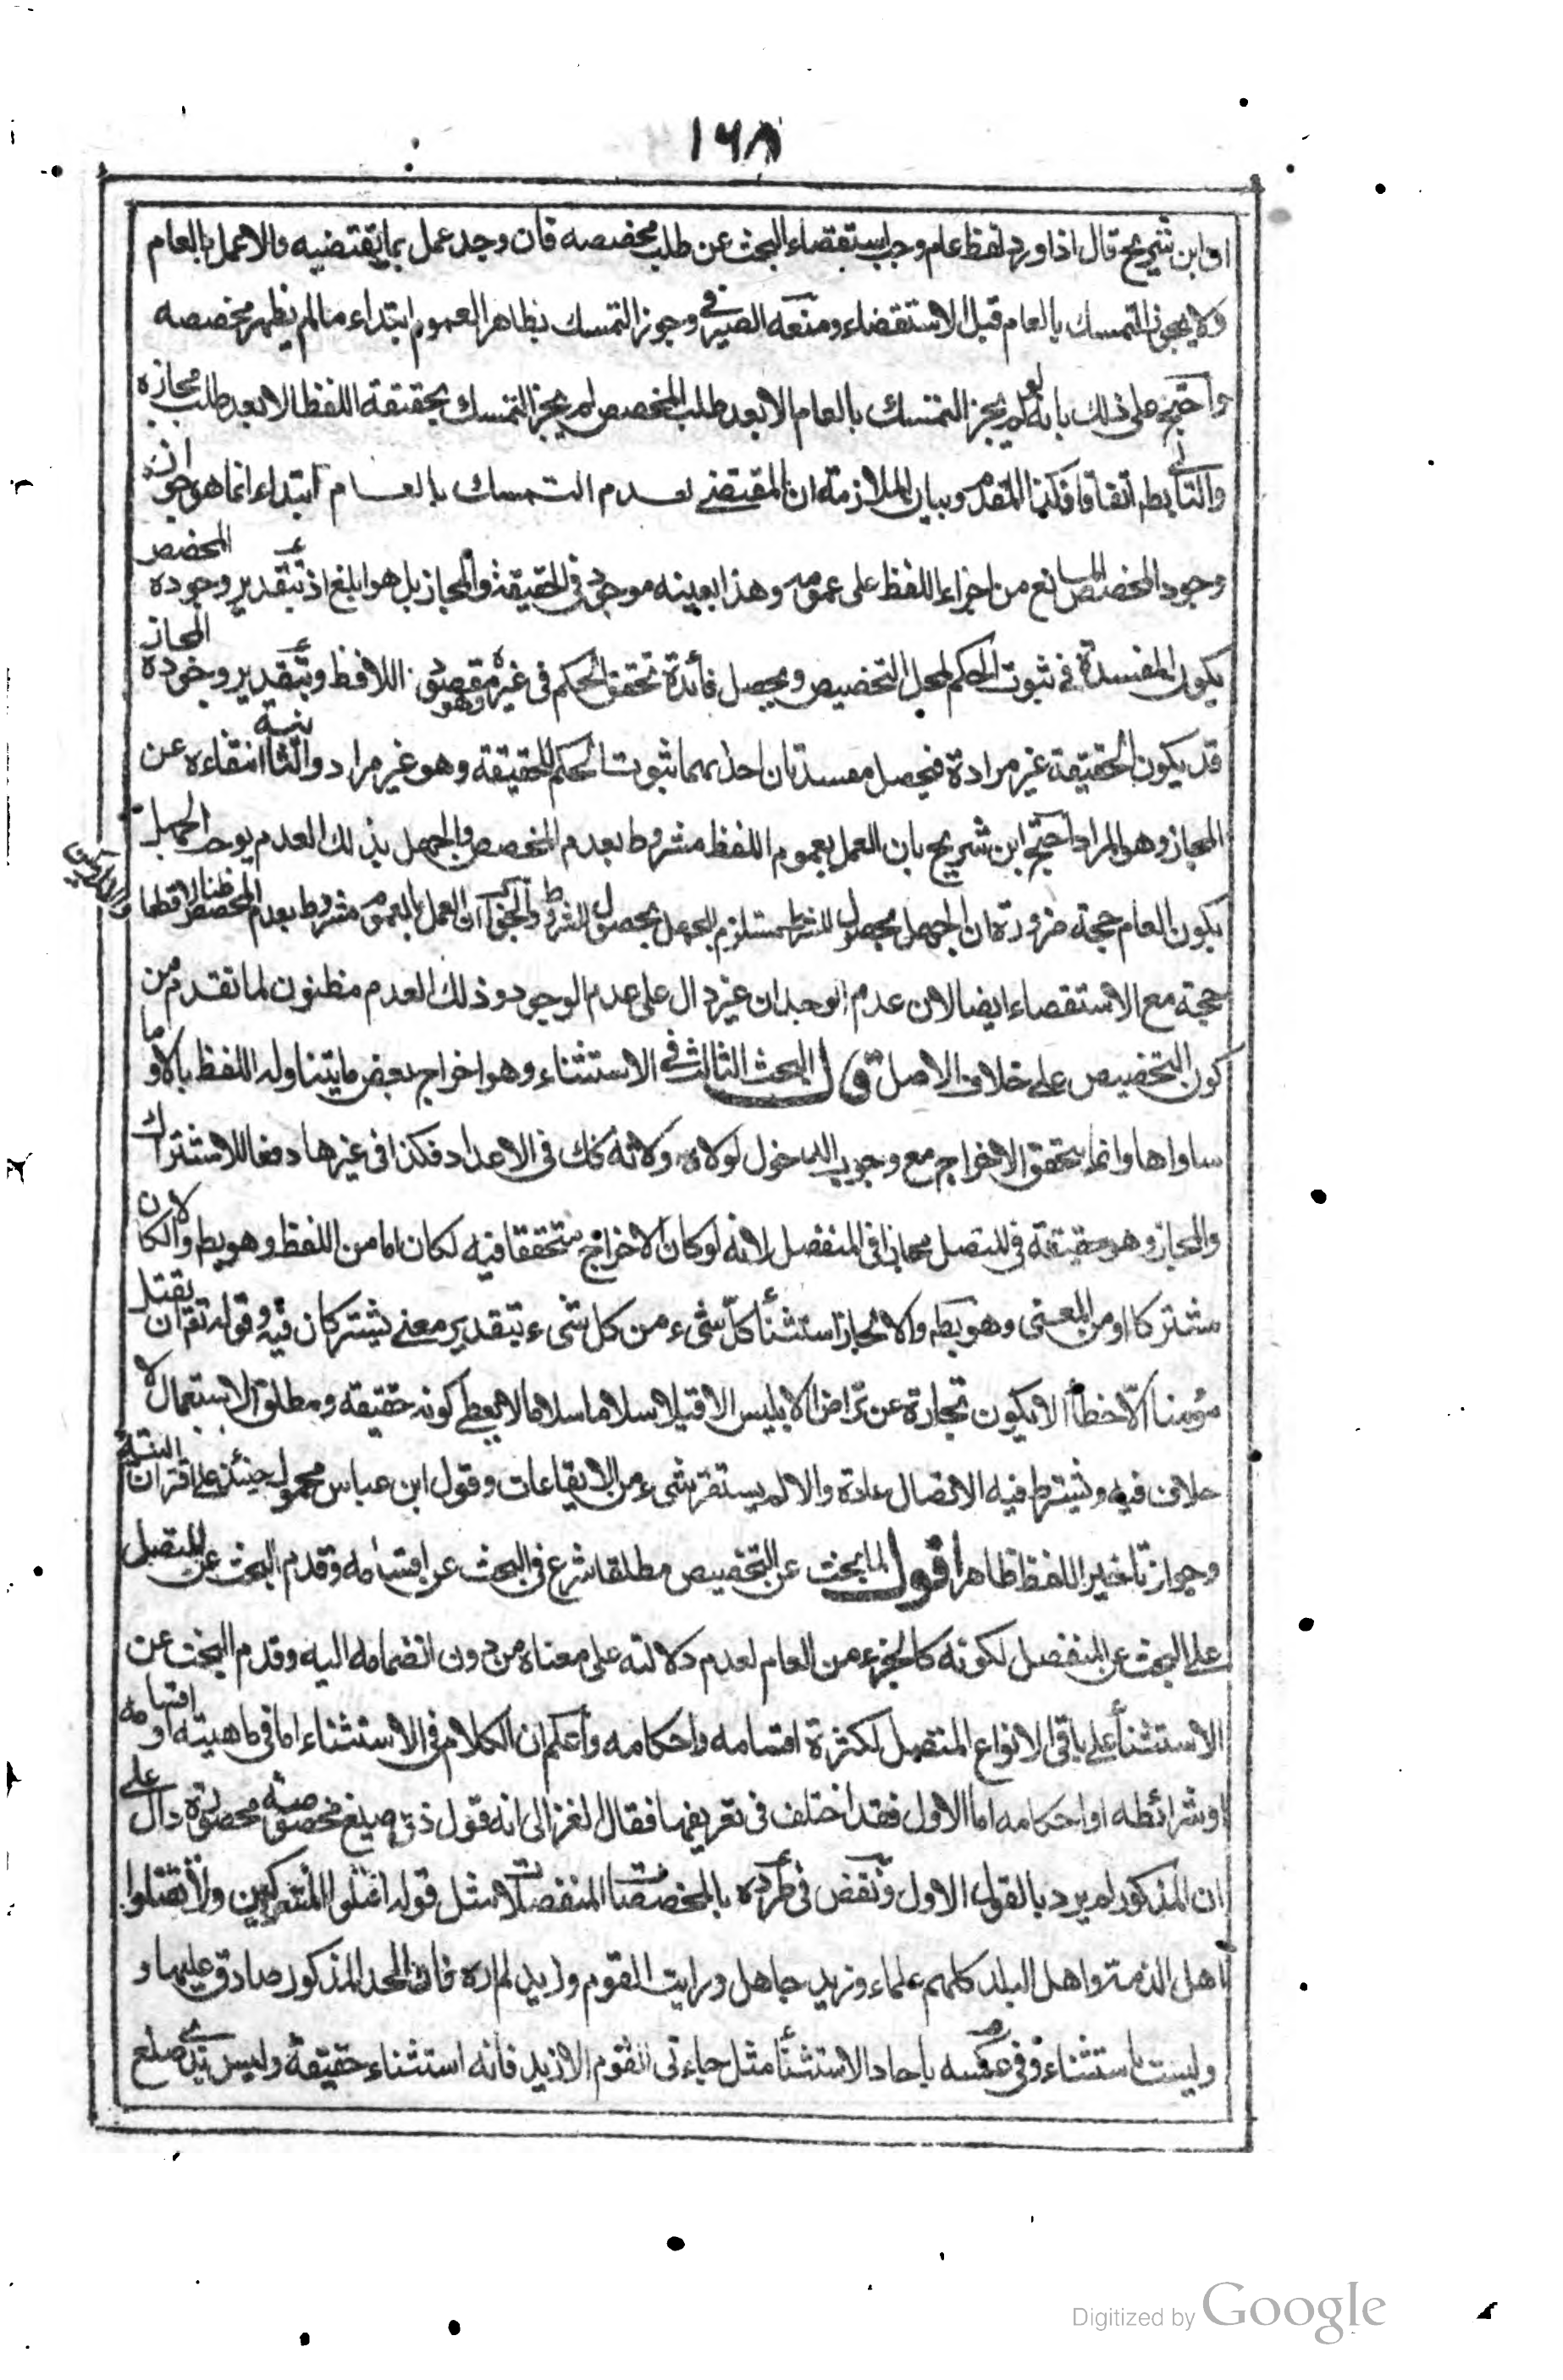 ١٦٨
اق ابن شريح قال اذا ورد لفظ عام وجب استقصاء البحث عن طلب مخصصه فان وجد عمل بما يقتضيه والا عمل بالعام
ولا يجوز التمسك بالعام قبل الاستقضاء ومنعه الصيرفي وجوز التمسك بظاهر العموم ابتداء مالم يظهر مخصصه
واحتج على ذلك بانه لو لم يجز التمسك بالعام الا بعد طلب المخصص لم يجز التمسك بحقيقة اللفظ الا بعد طلب مجازه
والتالي بط اتفاقا فكذا المقدم وبيان الملازمة ان المقتضى لعدم التمسك بالعام ابتداء انما هو جواز
وجود المخصص المانع من اجراء اللفظ على عمومه وهذا بعينه موجود في الحقيقة والمجاز بل هو ابلغ اذ بتقدير وجوده المخصص
يكون المفسدة في ثبوت الحكم لمحل التخصيص ويحصل فائدة تحقق الحكم في غيره وهو مقصود اللافظ وبتقدير وجوده المجاز
قد يكون الحقيقة غير مرادة فيحصل مفسدتان احدهما ثبوت الحكم للحقيقة وهو غير مراد والثانية انتفاءه عن
المجاز وهو المراد احتج ابن شريح بان العمل بعموم اللفظ مشروط بعدم المخصص والجهل بذلك العدم يوجب الجهل
يكون العام حجة ضرورة ان الجهل بحصول الشرط مستلزم للجهل بحصول المشروط والحق ان العمل بالعموم مشروط بعدم المخصص ظنا لا قطعا
حجة مع الاستقصاء ايضا لان عدم الوجدان غير دال على عدم الوجود وذلك العدم مظنون لما تقدم من
كون التخصيص على خلاف الاصل قال البحث الثالث في الاستثناء وهو اخراج بعض ما يتناوله اللفظ بالا وما
ساواها وانما يتحقق الاخراج مع وجوب الدخول لولاه ولانه كك في الاعداد فكذا في غيرها دفعا للاشتراك
والمجاز وهو حقيقة في المتصل مجاز في المنفصل لانه لو كان الاخراج متحققا فيه لكان اما من اللفظ وهو بط والا لكان
مشتركا او من المعنى وهو بط والا لجاز استثناء كل شيء من كل شيء بتقدير معنى يشتركان فيه وقوله تع ان يقتل
مؤمنا الا خطأ الا يكون تجارة عن تراض الا ابليس الا قيلا سلاما سلاما لا يعطى كونه حقيقة ومطلق الاستعمال لا
خلاف فيه ويشترط فيه الاتصال عادة والا لم يستقر شيء من الايقاعات وقول ابن عباس محمول حينئذ على اقتران النية
وجواز تاخير اللفظ ظاهرا اقول لما بحث عن التخصيص مطلقا شرع في البحث عن اقسامه وقدم البحث عن المتصل
على البحث عن المنفصل لكونه كالجزء من العام لعدم دلالته على معناه من دون انضمامه اليه وقدم البحث عن
الاستثناء على باقي الانواع المتصل لكثرة اقسامه واحكامه واعلم ان الكلام في الاستثناء اما في ماهيته او اقسامه
او شرائطه او احكامه اما الاول فقد اختلف في تعريفها فقال الغزالى انه قول ذو صيغ مخصوصة محصورة دال على
ان المذكور لم يرد بالقول الاول ونقض في طرده بالمخصصات المنفصلات مثل قوله اقتلوا المشركين ولا تقتلوا
اهل الذمة واهل البلد كلهم علماء وزيد جاهل ورايت القوم وزيد لم اره فان الحد المذكور صادق عليها و
وليست باستثناء وفي عكسه باحاد الاستثناء مثل جاءني القوم الا زيد فانه استثناء حقيقة وليس بذي صلع